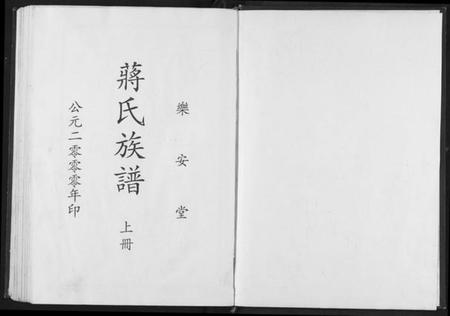 樂安堂
蔣氏族譜 上冊
公元二零零零年印